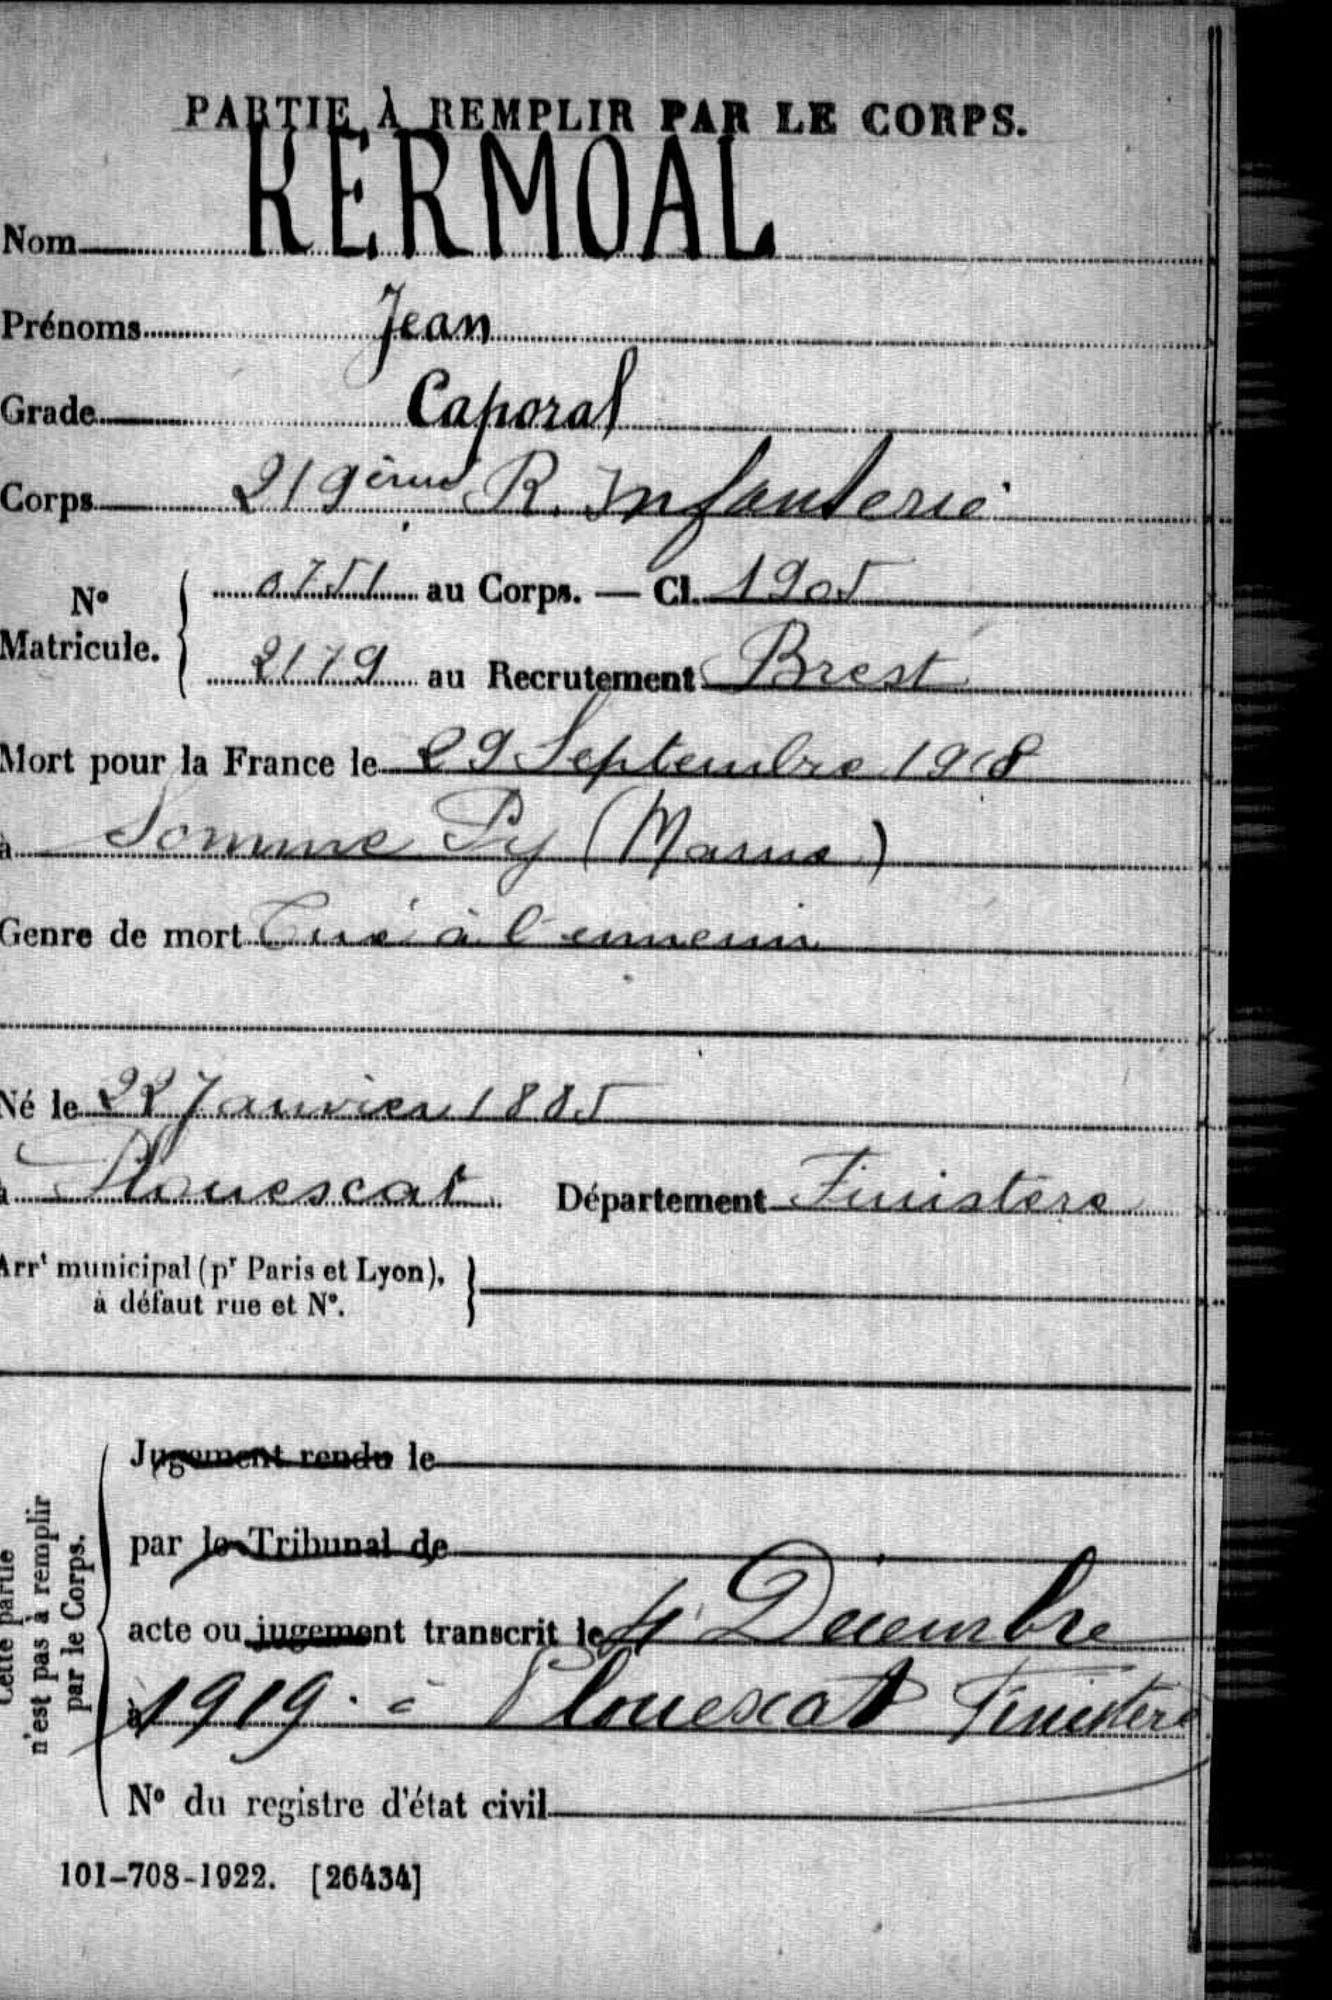 PARTIE À REMPLIR PAR LE CORPS.
Nom KERMOAL
Prénoms Jean
Grade Caporal
Corps 219ème R. Infanterie
N° Matricule. 0751 au Corps. — Cl. 1905
2179 au Recrutement Brest
Mort pour la France le 29 Septembre 1918
à Somme Py (Marne)
Genre de mort Tué à l'ennemi
Né le 22 Janvier 1885
à Plouescat Département Finistère
Arrt municipal (pr Paris et Lyon),
à défaut rue et N°.
Cette partie
n'est pas à remplir
par le Corps.
Jugement rendu le
par le Tribunal de
acte ou jugement transcrit le 4 Décembre
à 1919 à Plouescat Finistère
N° du registre d'état civil
101-708-1922. [26434]